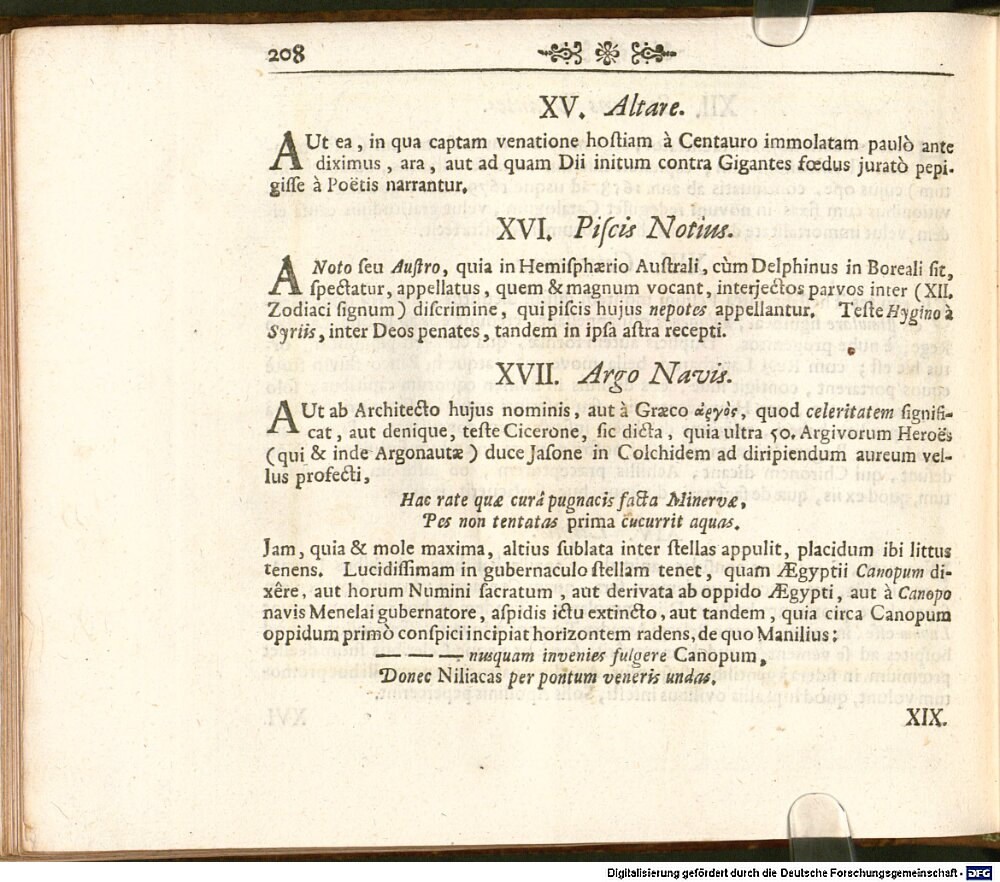 208
XV. Altare.
AUt ea, in qua captam venatione hoſtiam à Centauro immolatam paulò ante
diximus, ara, aut ad quam Dii initum contra Gigantes fœdus juratò pepi-
giſſe à Poëtis narrantur.
XVI. Piſcis Notius.
A Noto ſeu Auſtro, quia in Hemiſphærio Auſtrali, cùm Delphinus in Boreali ſit,
ſpectatur, appellatus, quem & magnum vocant, interjectos parvos inter (XII.
Zodiaci ſignum) diſcrimine, qui piſcis hujus nepotes appellantur. Teſte Hygino à
Syriis, inter Deos penates, tandem in ipſa aſtra recepti.
XVII. Argo Navis.
AUt ab Architecto hujus nominis, aut à Græco ἀργὸς, quod celeritatem ſignifi-
cat, aut denique, teſte Cicerone, ſic dicta, quia ultra 50. Argivorum Heroës
(qui & inde Argonautæ) duce Jaſone in Colchidem ad diripiendum aureum vel-
lus profecti,
Hac rate quæ curâ pugnacis facta Minervæ,
Pes non tentatas prima cucurrit aquas.
Jam, quia & mole maxima, altius ſublata inter ſtellas appulit, placidum ibi littus
tenens. Lucidiſſimam in gubernaculo ſtellam tenet, quam Ægyptii Canopum di-
xêre, aut horum Numini ſacratum, aut derivata ab oppido Ægypti, aut à Canopo
navis Menelai gubernatore, aſpidis ictu extincto, aut tandem, quia circa Canopum
oppidum primò conſpici incipiat horizontem radens, de quo Manilius:
— — — nusquam invenies fulgere Canopum,
Donec Niliacas per pontum veneris undas.
XIX.
Digitalisierung gefördert durch die Deutsche Forschungsgemeinschaft - DFG